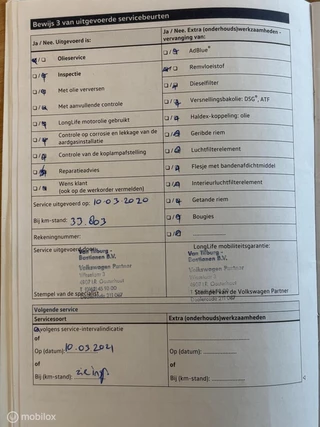 Bewijs 3 van uitgevoerde servicebeurten
Ja / Nee. Uitgevoerd is:
Olieservice
Inspectie
Met olie verversen
Met aanvullende controle
LongLife motorolie gebruikt
Controle op corrosie en lekkage van de
aardgasinstallatie
Controle van de koplampafstelling
Reparatieadvies
Wens klant
(ook op de werkorder vermelden)
Service uitgevoerd op: 10-03-2020
Bij km-stand: 33.803
Rekeningnummer:
Service uitgevoerd door:
Van Tilburg -
Bastianen B.V.
Volkswagen Partner
Stempel van de specialist
Ja / Nee. Extra (onderhouds)werkzaamheden -
vervanging van:
AdBlue®
Remvloeistof
Dieselfilter
Versnellingsbakolie: DSG®, ATF
Haldex-koppeling: olie
Geribde riem
Luchtfilterelement
Flesje met bandenafdichtmiddel
Interieurluchtfilterelement
Getande riem
Bougies
LongLife mobiliteitsgarantie:
Van Tilburg -
Bastianen B.V.
Volkswagen Partner
Stempel van de Volkswagen Partner
Volgende service
Servicesoort
Volgens service-intervalindicatie
of
Op (datum): 10-03-2021
of
Bij (km-stand):
Extra (onderhouds)werkzaamheden
Op (datum):
of
Bij (km-stand):
mobilox